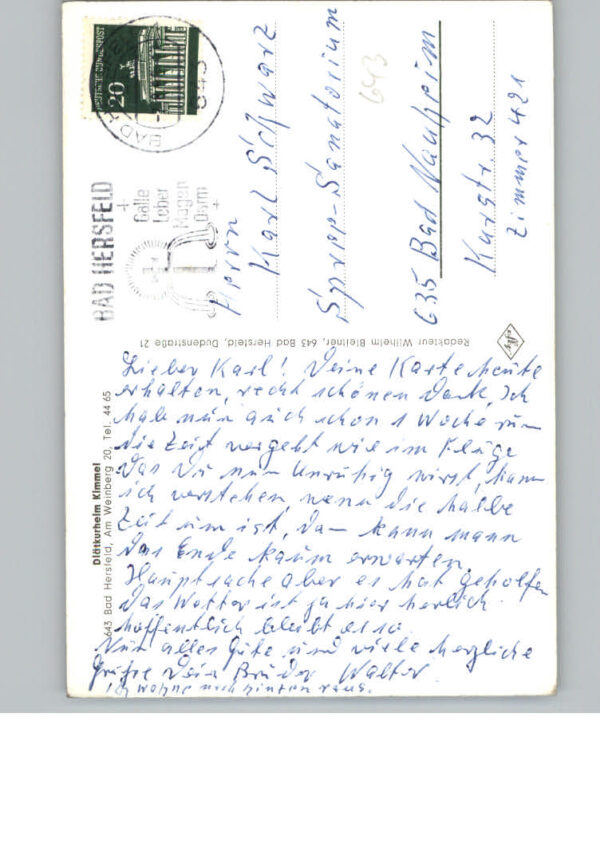 DEUTSCHE BUNDESPOST
20
BAD HERSFELD
Galle
Leber
Magen
Darm
Herrn
Karl Schwarz
Sprudel-Sanatorium
643
635 Bad Nauheim
Kurstr. 32
Zimmer 421
Redakteur Wilhelm Bleitner, 643 Bad Hersfeld, Dudenstraße 21
Agfa
Diätkurheim Kimmel
643 Bad Hersfeld, Am Weinberg 20, Tel. 44 65
Lieber Karl! Deine Karte heute
erhalten, recht schönen Dank, Ich
hab nun auch schon 1 Woche rum
die Zeit vergeht wie im Fluge
Das Du nun Unruhig wirst, kann
ich verstehen, wenn die halbe
Zeit um ist, da kann mann
das Ende kaum erwarten.
Hauptsache aber es hat geholfen
Das Wetter ist ja hier herlich
hoffentlich bleibt es so.
Nun alles Gute und viele herzliche
Grüße Dein Bruder Walter
Ich wohne nach hinten raus.